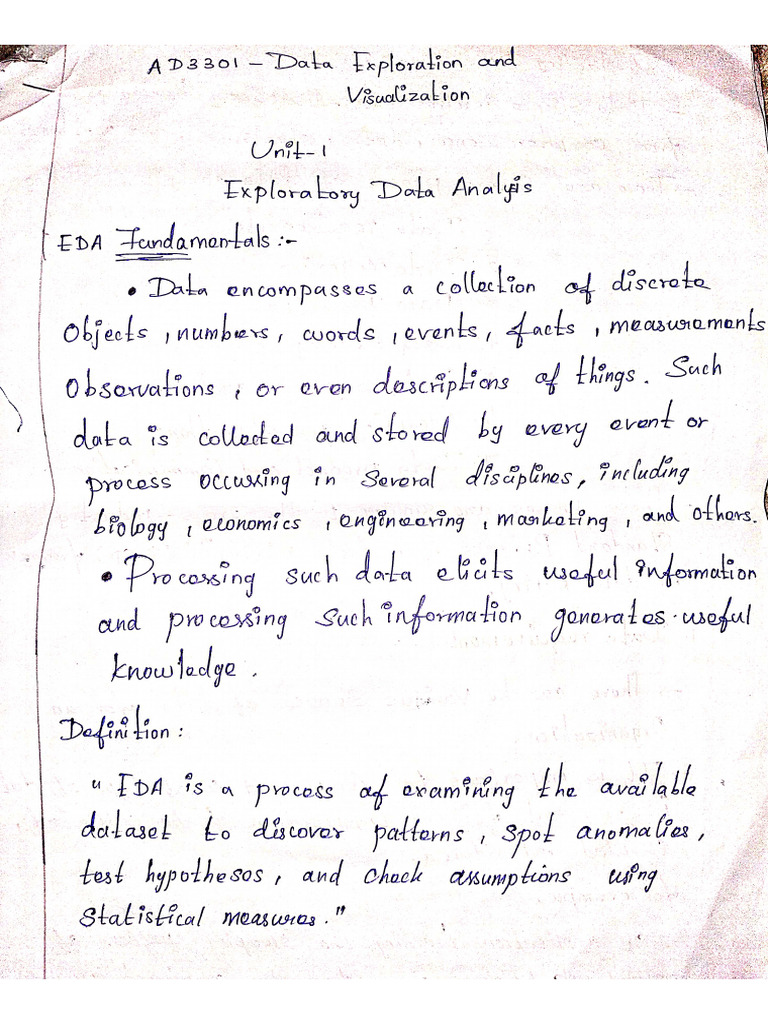 AD3301 - Data Exploration and
Visualization
Unit-1
Exploratory Data Analysis
EDA Fundamentals :-
• Data encompasses a collection of discrete
Objects, numbers, words, events, facts, measurements
Observations, or even descriptions of things. Such
data is collected and stored by every event or
process occurring in several disciplines, including
biology, economics, engineering, marketing, and others.
• Processing such data elicits useful information
and processing such information generates useful
knowledge.
Definition:
" EDA is a process of examining the available
dataset to discover patterns, spot anomalies,
test hypotheses, and check assumptions using
Statistical measures."